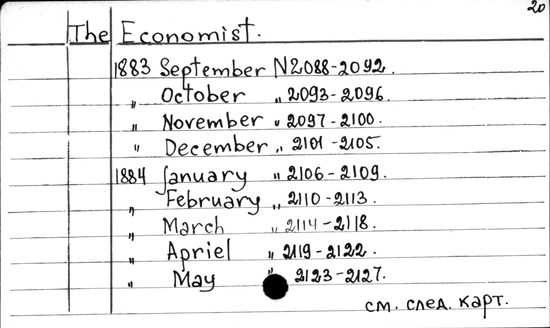 20
The Economist.
1883 September N2088-2092.
" October " 2093-2096.
" November " 2097-2100.
" December " 2101-2105.
1884 January " 2106-2109.
" February " 2110-2113.
" March " 2114-2118.
" Apriel " 2119-2122.
" May " 2123-2127.
см. след. карт.